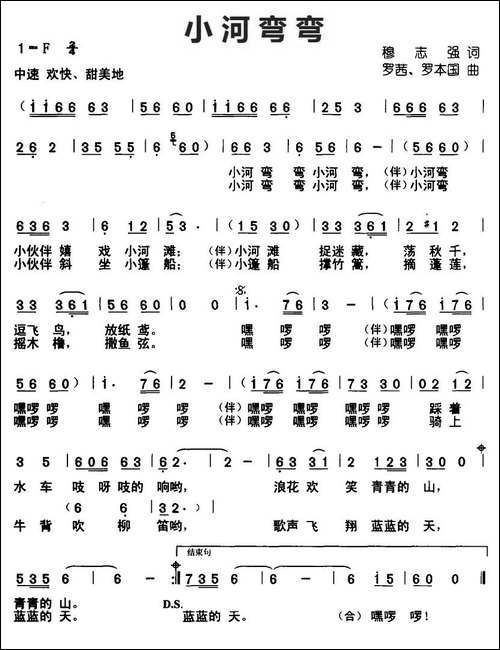 小河弯弯
1=F 2/4
穆志强 词
中速 欢快、甜美地
罗茜、罗本国 曲
(i i 6 6 6 3 | 5 6 6 0 | i i 6 6 6 3 | 5 6 6 0 | i i 6 6 6 3 |
2 6 2 | 3 5 5 5 | 6 6 0) | 6 3 6 | 5 6 3 5 | 6 - | (5 6 6 0) |
小河 弯 弯 小河 弯, (伴)小河弯
小河 弯 弯 小河 弯, (伴)小河弯
6 3 6 3 | 6 1 2 | 5 3 · | (1 5 3 0) | 3 3 3 6 1 | 2 #1 2 |
小伙伴 嬉 戏 小河 滩; (伴)小河 滩 捉迷 藏, 荡 秋 千,
小伙伴 斜 坐 小篷 船; (伴)小篷 船 撑竹 篙, 摘 蓬 莲,
3 3 3 6 1 | 5 6 6 0 | 0 0 | i · 7 6 | 3 - | (i 7 6 i 7 6 |
逗飞 鸟, 放纸 鸢。 嘿 啰 啰 (伴)嘿啰 嘿啰
摇木 橹, 撒鱼 弦。 嘿 啰 啰 (伴)嘿啰 嘿啰
5 6 6 0) | i · 7 6 | 2 - | (i 7 6 i 7 6 | i 7 6 2) | 0 2 1 2 |
嘿啰 啰 嘿 啰 啰 (伴)嘿啰 嘿啰 嘿啰 啰 踩着
嘿啰 啰 嘿 啰 啰 (伴)嘿啰 嘿啰 嘿啰 啰 骑上
3 5 | 6 0 6 6 3 | 6 2 · | 2 - | 3 2 3 3 1 | 2 1 2 3 | 3 0 0 |
水 车 吱 呀 吱的 响哟, 浪花 欢 笑 青青的 山,
(6 6 | 1 3 5 | 6 2 ·)
牛 背 吹 柳 笛哟, 歌声 飞 翔 蓝蓝的 天,
结束句
5 3 5 | 6 · | 6 - :‖ 7 3 5 | 6 · | 6 6 | 6 0 6 | 6 0 ‖
青青的 山。 D.S.
蓝蓝的 天。 蓝蓝的 天。 (合) 嘿啰 啰!